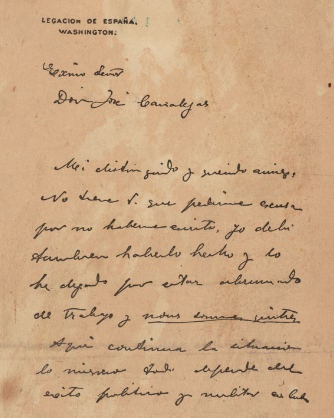 LEGACION DE ESPAÑA.
WASHINGTON.
Exmo Señor
Don José Canalejas
Mi distinguido y querido amigo:
No tiene V. que pedirme excusa
por no haberme escrito, yo debí
tambien haberlo hecho y lo
he dejado por estar abrumado
de trabajo y nous sommes quittes
Aquí continua la situacion
lo mismo todo depende del
exito politico y militar en Cuba